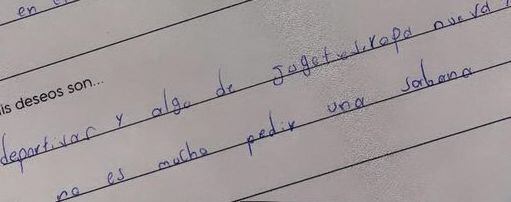 en
is deseos son...
deportivar y algo de jugetes, ropa nueva
no es mucho pedir una sabana